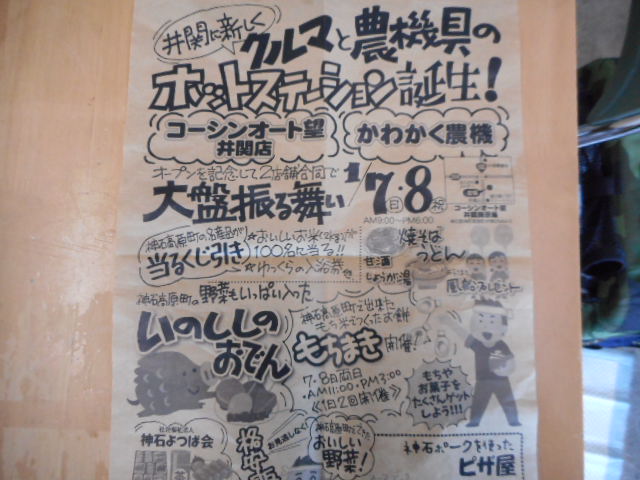 井関に新しく
クルマと農機具の
ホットステーション誕生!
コーシンオート望
井関店
かわかく農機
オープンを記念して2店舗合同で
大盤振る舞い 1/7(日)・8(祝)
AM9:00〜PM6:00
コーシンオート望
井関展示場
神石高原町の名産品が
当るくじ引き
☆おいしいお米(2kg)が
100名に当る!!
☆ゆっくらの入浴券も
甘酒
しょうが湯
焼そば
うどん
風船プレゼント
神石高原町の野菜もいっぱい入った
いのししの
おでん
神石高原町で出来た
もち米でつくったお餅
もちまき開催!
7・8両日
・AM11:00・PM3:00
《1日2回開催》
もちや
お菓子を
たくさんゲット
しよう!!!
社会福祉法人
神石よつば会
格安
お見逃しなく!
神石高原町でとれた
おいしい
野菜!
神石ポークを使った
ピザ屋